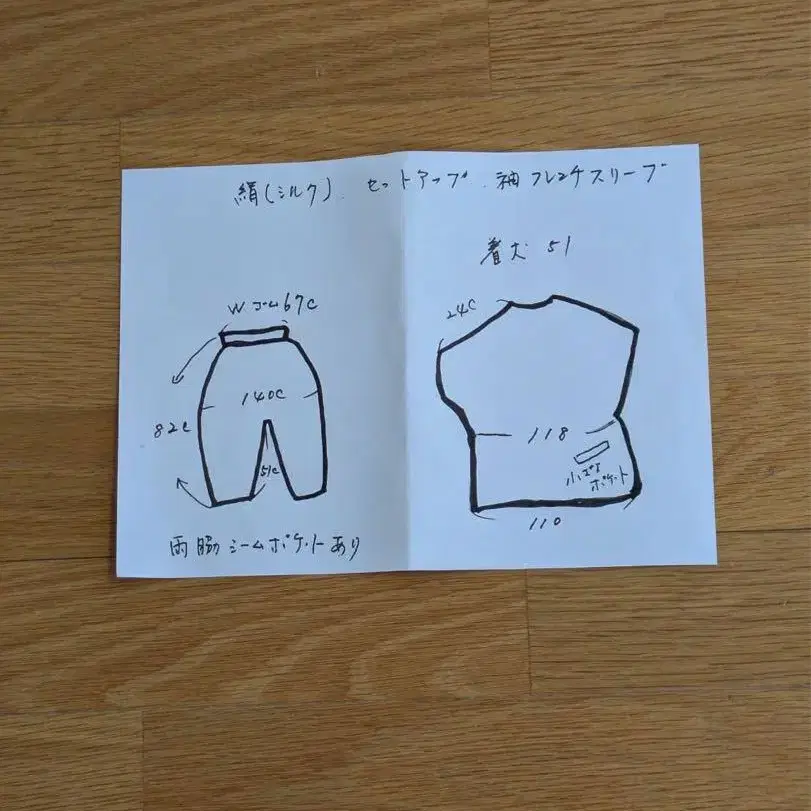 絹(シルク). セットアップ. 袖フレンチスリーブ
着丈 51
Wゴム67C
140C
82C
51C
両脇シームポケットあり
24C
118
小さな
ポケット
110